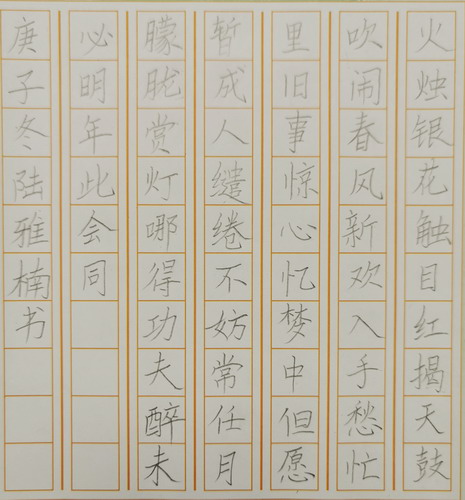 火烛银花触目红揭天鼓
吹闹春风新欢入手愁忙
里旧事惊心忆梦中但愿
暂成人缱绻不妨常任月
朦胧赏灯哪得功夫醉未
必明年此会同
庚子冬陆雅楠书